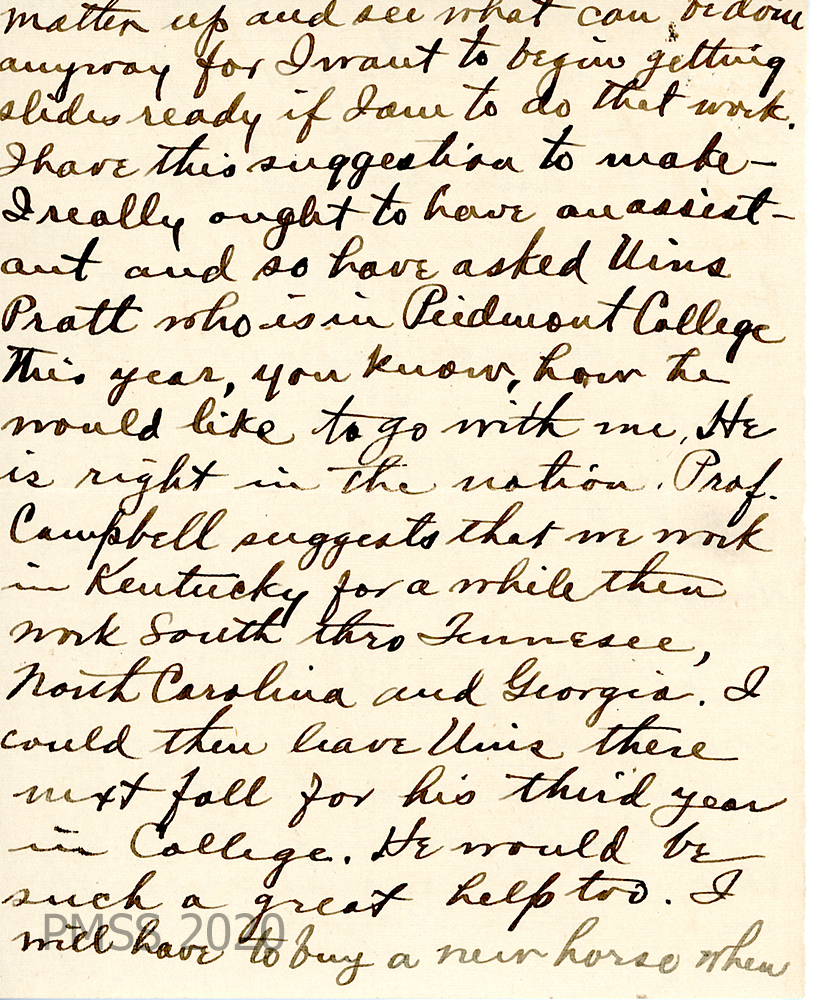 matter up and see what can be done
anyway for I want to begin getting
slides ready if I am to do that work.
I have this suggestion to make—
I really ought to have an assist-
ant and so have asked Unis
Pratt who is in Piedmont College
this year, you know, how he
would like to go with me. He
is right in the notion. Prof.
Campbell suggests that we work
in Kentucky for a while then
work South thro Tennesee,
North Carolina and Georgia. I
could then leave Unis there
next fall for his third year
in College. He would be
such a great help too. I
PMSS 2020
will have to buy a new horse when